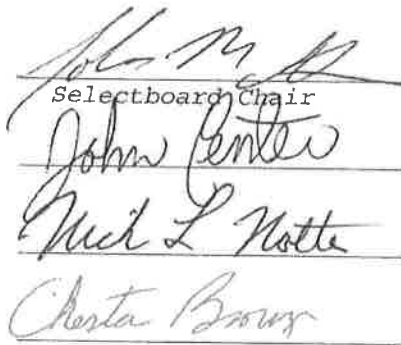 John M
Selectboard Chair
John Center
Nick L Notte
Chester Brown